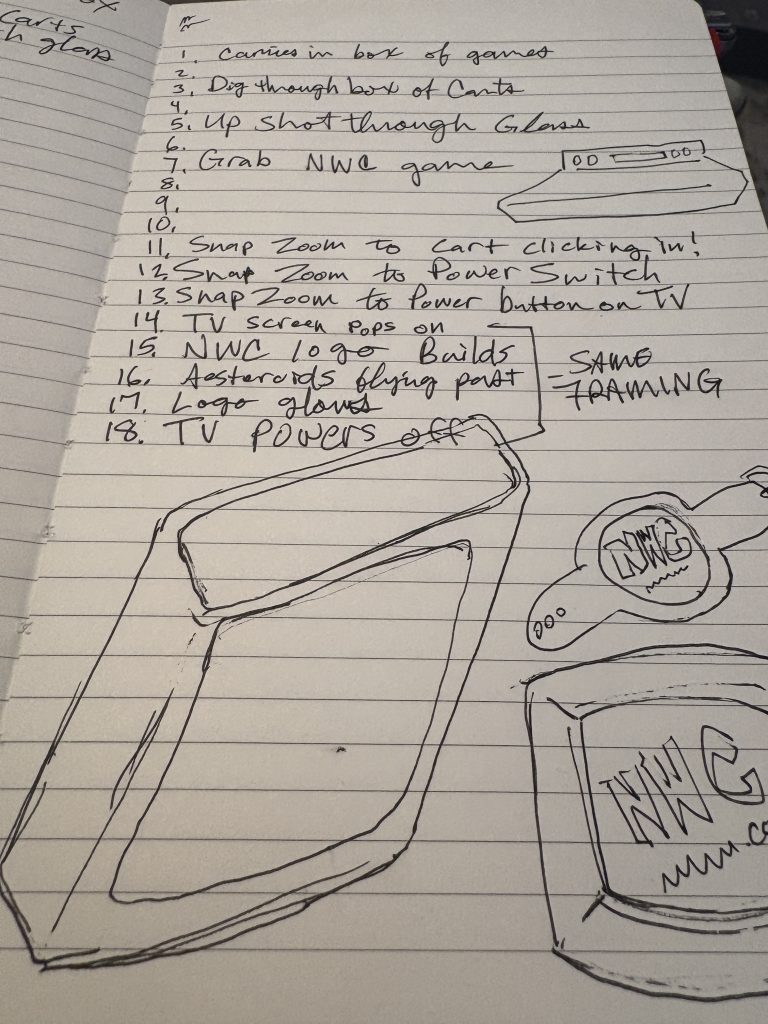 Carts
h glass
1. Carries in box of games
2.
3. Dig through box of Carts
4.
5. Up shot through Glass
6.
7. Grab NWC game
8.
9.
10.
11. Snap Zoom to Cart clicking in!
12. Snap Zoom to Power Switch
13. Snap Zoom to Power button on TV
14. TV screen pops on
15. NWC logo Builds
16. Aesteroids flying past
17. Logo glows
18. TV Powers off
- SAME
FRAMING
NWC
NWC
.co